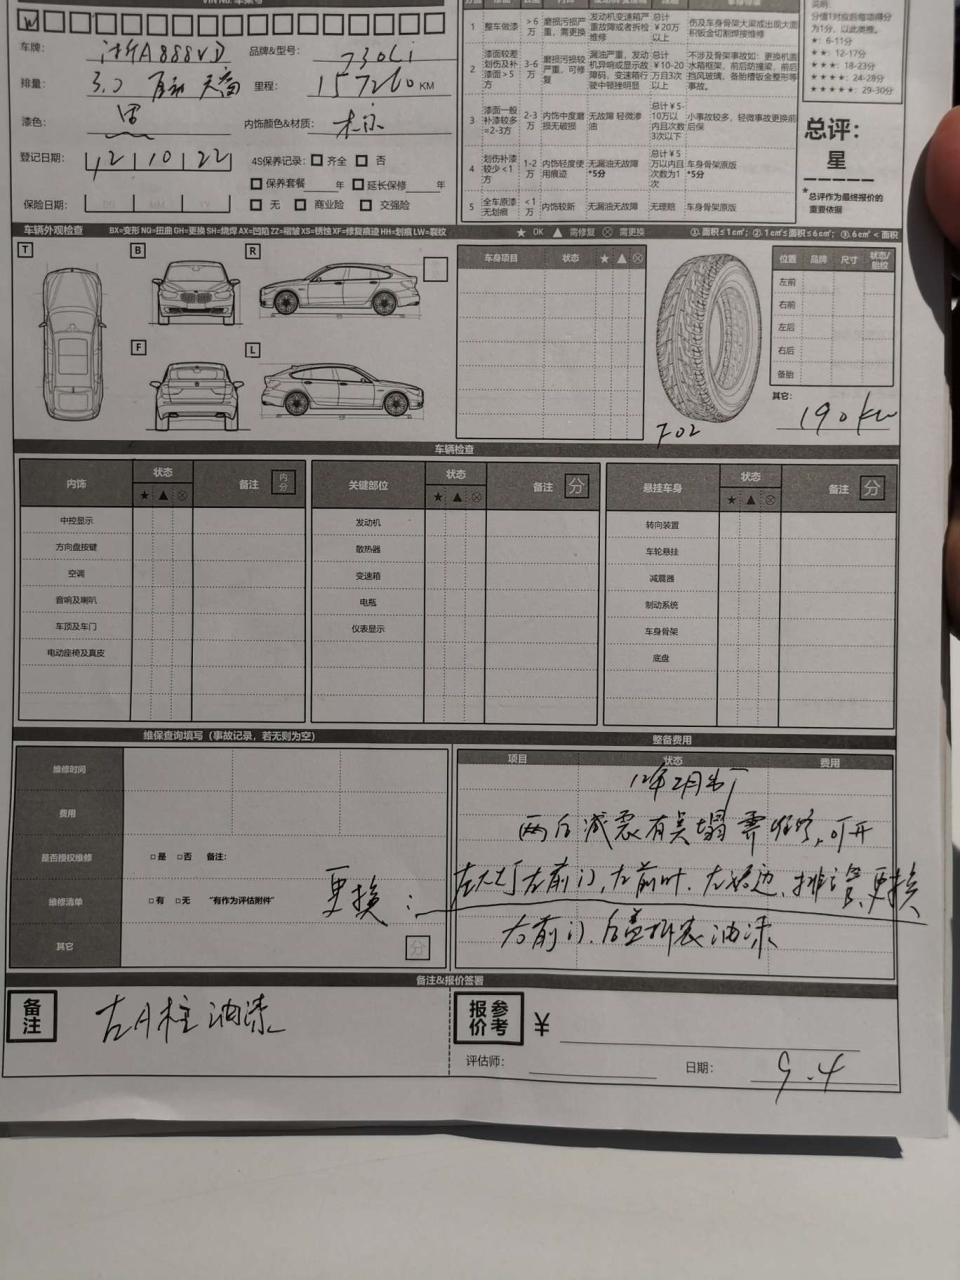 VIN No. 车架号
W
车牌: 浙A888VD 品牌&型号: 730Li
排量: 3.0 天窗 里程: 157260 KM
漆色: 黑 内饰颜色&材质: 棕
登记日期: 12 10 22 4S保养记录: □ 齐全 □ 否
□ 保养套餐 年 □ 延长保修 年
保险日期: DD MM YY □ 无 □ 商业险 □ 交强险
1 整车做漆 >6万 磨损污损严重,需更换 发动机变速箱严重故障或者拆检维修 总计¥20万以上 伤及车身骨架大梁或出现大面积钣金切割焊接维修
2 漆面较差划伤及补漆面>5方 3-6万 磨损污损较严重,可修复 漏油严重,发动机异响或显示故障码,变速箱行驶中顿挫明显 总计¥10-20万且3次以上 不涉及骨架事故如:更换机盖水箱框架,前后防撞梁,前后挡风玻璃,备胎槽钣金整形等事故。
3 漆面一般补漆较多=2-3方 2-3万 内饰中度磨损无破损 无故障 轻微渗油 总计¥5-10万以内且次数3次以下 小事故较多,轻微事故更换前后保
4 划伤补漆较少<1方 1-2万 内饰轻度使用痕迹 无漏油无故障 *5分 总计¥5万以内且次数为1次 车身骨架原版 *5分
5 全车原漆无划痕 <1万 内饰较新 无漏油无故障 无理赔 车身骨架原版
说明:
分值1对应后每项得分为1分,以此类推。
★: 6-11分
★★: 12-17分
★★★: 18-23分
★★★★: 24-28分
★★★★★: 29-30分
总评:
星
*总评作为最终报价的重要依据
车辆外观检查 BX=变形 NQ=扭曲 GH=更换 SH=烧焊 AX=凹陷 ZZ=褶皱 XS=锈蚀 XF=修复痕迹 HH=划痕 LW=裂纹 ★ OK ▲ 需修复 ⊗ 需更换 ①. 面积≤1cm²; ②. 1cm²≤面积≤6cm²; ③. 6cm²<面积
T B R
F L
车身项目 状态 ★ ▲ ⊗
位置 品牌 尺寸 状态/胎纹
左前
右前
左后
右后
备胎
其它: 190kw
F02
车辆检查
内饰 状态 ★ ▲ ⊗ 备注 内分
中控显示
方向盘按键
空调
音响及喇叭
车顶及车门
电动座椅及真皮
关键部位 状态 ★ ▲ ⊗ 备注 分
发动机
散热器
变速箱
电瓶
仪表显示
悬挂车身 状态 ★ ▲ ⊗ 备注 分
转向装置
车轮悬挂
减震器
制动系统
车身骨架
底盘
维保查询填写(事故记录,若无则为空)
维修时间
费用
是否授权维修 □是 □否 备注:
维修清单 □有 □无 "有作为评估附件"
其它 分
整备费用
项目 状态 费用
12年2月出厂
两后减震有异塌需维修,可开
更换: 左大灯 左前门, 左前叶. 排气管更换
右前门. 后盖拆装油漆
备注&报价签署
备注 左A柱油漆
报价参考 ¥
评估师: 日期: 9.4